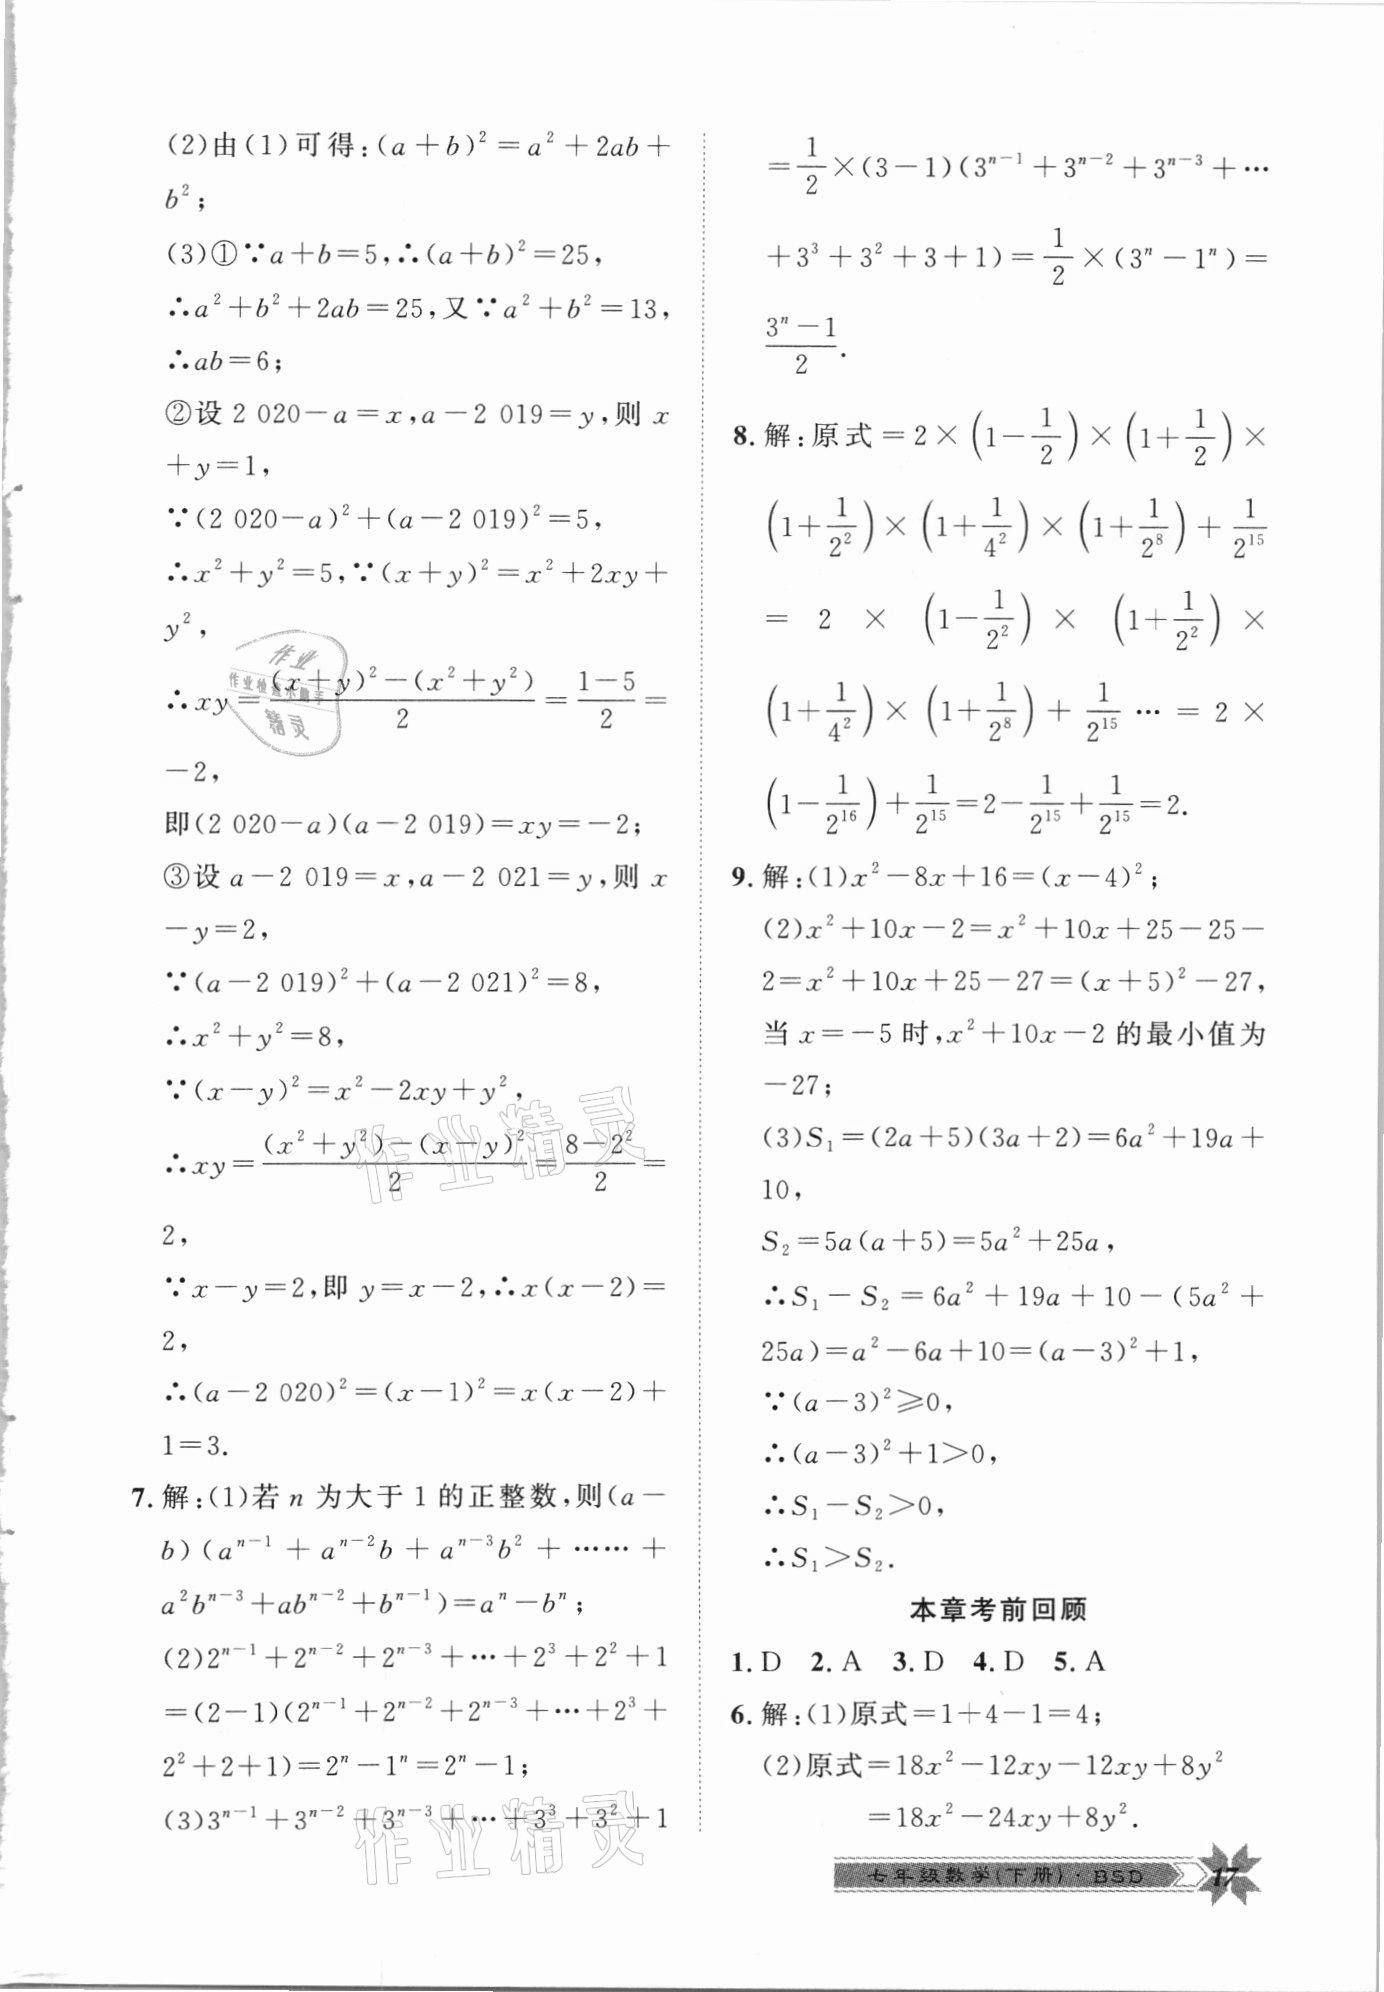 (2)由(1)可得:(a+b)²=a²+2ab+
b²;
(3)①∵a+b=5,∴(a+b)²=25,
∴a²+b²+2ab=25,又∵a²+b²=13,
∴ab=6;
②设 2 020-a=x,a-2 019=y,则 x
+y=1,
∵(2 020-a)²+(a-2 019)²=5,
∴x²+y²=5,∵(x+y)²=x²+2xy+
y²,
∴xy=\frac{(x+y)²-(x²+y²)}{2}=\frac{1-5}{2}=
-2,
即(2 020-a)(a-2 019)=xy=-2;
③设 a-2 019=x,a-2 021=y,则 x
-y=2,
∵(a-2 019)²+(a-2 021)²=8,
∴x²+y²=8,
∵(x-y)²=x²-2xy+y²,
∴xy=\frac{(x²+y²)-(x-y)²}{2}=\frac{8-2²}{2}=
2,
∵x-y=2,即 y=x-2,∴x(x-2)=
2,
∴(a-2 020)²=(x-1)²=x(x-2)+
1=3.
7. 解:(1)若 n 为大于 1 的正整数,则(a-
b)(a^{n-1}+a^{n-2}b+a^{n-3}b²+……+
a²b^{n-3}+ab^{n-2}+b^{n-1})=a^n-b^n;
(2)2^{n-1}+2^{n-2}+2^{n-3}+…+2³+2²+1
=(2-1)(2^{n-1}+2^{n-2}+2^{n-3}+…+2³+
2²+2+1)=2^n-1^n=2^n-1;
(3)3^{n-1}+3^{n-2}+3^{n-3}+…+3³+3²+1
=\frac{1}{2}×(3-1)(3^{n-1}+3^{n-2}+3^{n-3}+…
+3³+3²+3+1)=\frac{1}{2}×(3^n-1^n)=
\frac{3^n-1}{2}.
8. 解:原式=2×(1-\frac{1}{2})×(1+\frac{1}{2})×
(1+\frac{1}{2²})×(1+\frac{1}{4²})×(1+\frac{1}{2⁸})+\frac{1}{2^{15}}
=2×(1-\frac{1}{2²})×(1+\frac{1}{2²})×
(1+\frac{1}{4²})×(1+\frac{1}{2⁸})+\frac{1}{2^{15}}…=2×
(1-\frac{1}{2^{16}})+\frac{1}{2^{15}}=2-\frac{1}{2^{15}}+\frac{1}{2^{15}}=2.
9. 解:(1)x²-8x+16=(x-4)²;
(2)x²+10x-2=x²+10x+25-25-
2=x²+10x+25-27=(x+5)²-27,
当 x=-5 时,x²+10x-2 的最小值为
-27;
(3)S₁=(2a+5)(3a+2)=6a²+19a+
10,
S₂=5a(a+5)=5a²+25a,
∴S₁-S₂=6a²+19a+10-(5a²+
25a)=a²-6a+10=(a-3)²+1,
∵(a-3)²≥0,
∴(a-3)²+1>0,
∴S₁-S₂>0,
∴S₁>S₂.
本章考前回顾
1. D 2. A 3. D 4. D 5. A
6. 解:(1)原式=1+4-1=4;
(2)原式=18x²-12xy-12xy+8y²
=18x²-24xy+8y².
七年级数学(下册)·BSD 17
作业
作业检查小助手
精灵
作业精灵
作业精灵